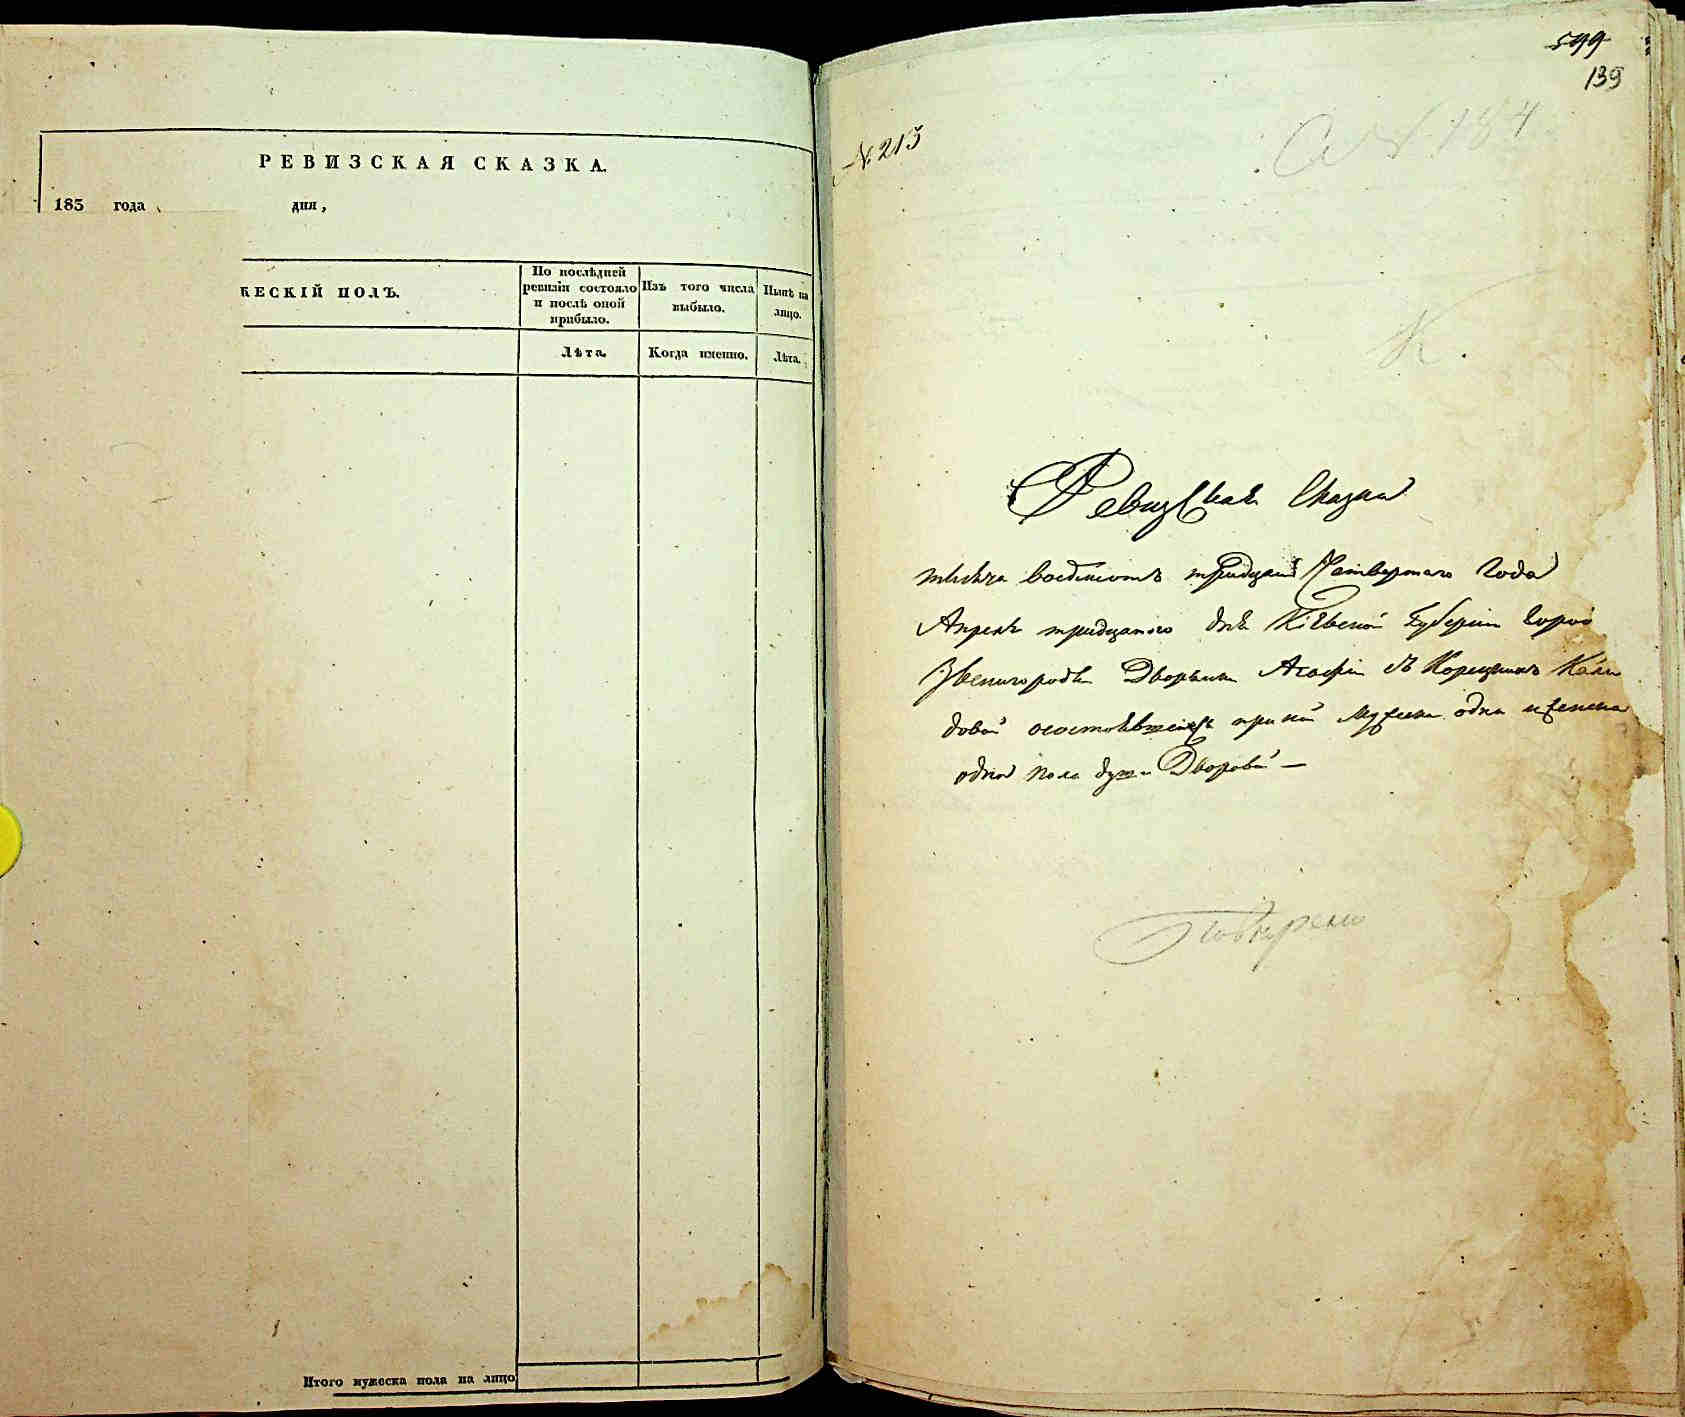 РЕВИЗСКАЯ СКАЗКА.
183 года дня,
ЖЕСКІЙ ПОЛЪ.
По послѣдней ревизіи состояло и послѣ оной прибыло.
Изъ того числа выбыло.
Нынѣ на лицо.
Лѣта.
Когда именно.
Лѣта.
Итого мужеска пола на лицо
599
139
№ 215
184
К.
Ревизская Сказка
тысяча восемсотъ тридцать Четвертаго Года
Апреля тридцатого дня Кіевской Губерніи Город
Звенигородки Дворянки Агафіи
состоявшейся при ней мужеска одна и женска
одна пола душа Дворовой —
Повѣрено